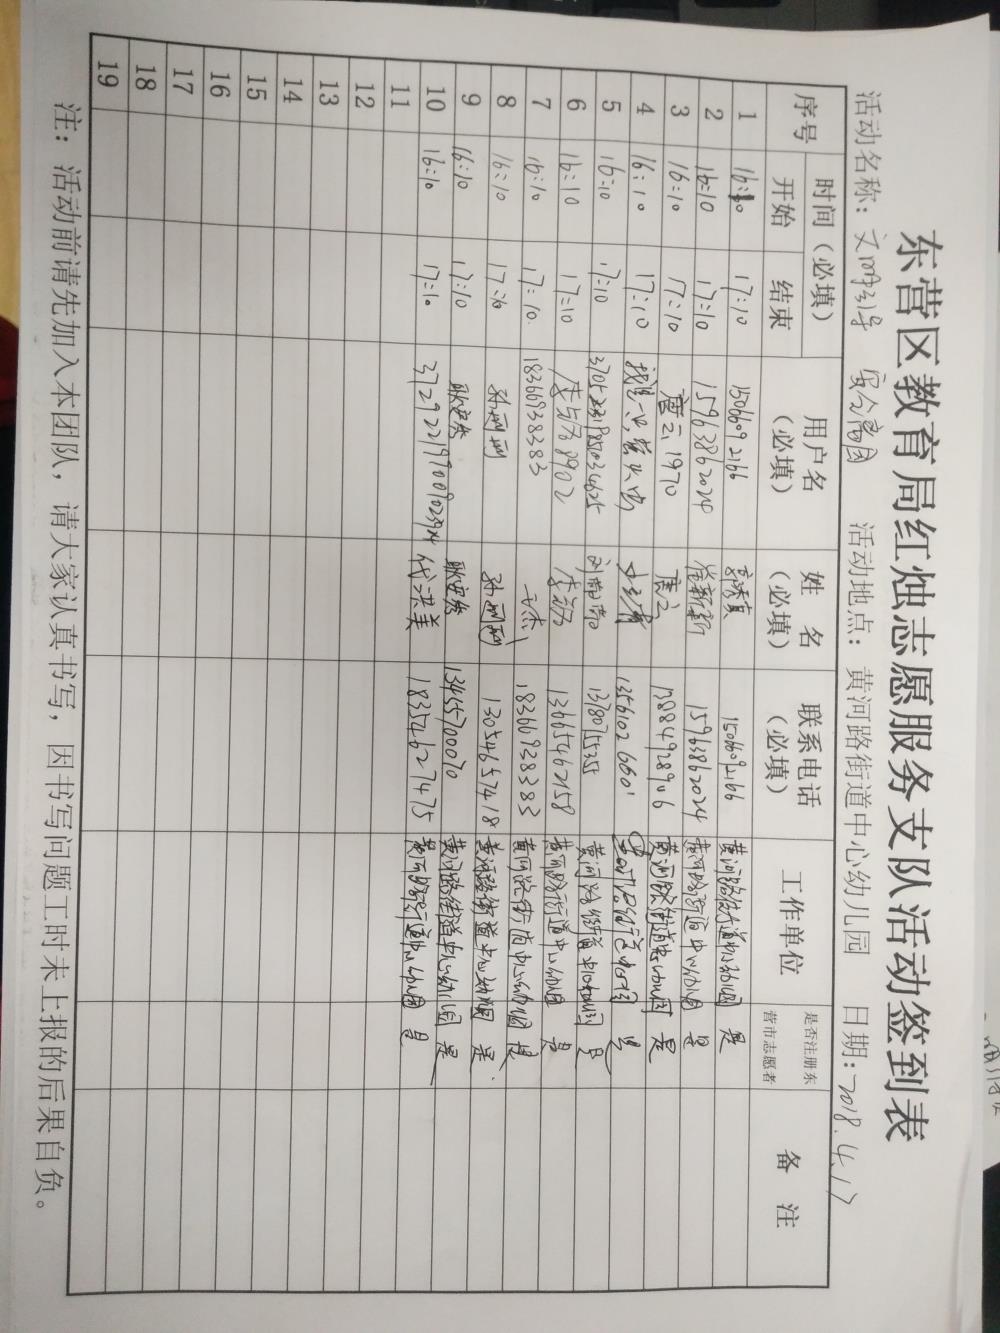 东营区教育局红烛志愿服务支队活动签到表
活动名称：文明引导 安全离园 活动地点：黄河路街道中心幼儿园 日期：2018.4.17
序号 时间（必填） 用户名（必填） 姓名（必填） 联系电话（必填） 工作单位 是否注册东营市志愿者 备注
开始 结束
1 16:10 17:10 15066092166 郭秀真 15066092166 是
2 16:10 17:10 15963862024 崔新新 15963862024 黄河路街道中心幼儿园 是
3 16:10 17:10 唐云1970 唐云 13884928906 黄河路街道中心幼儿园 是
4 16:10 17:10 13561026601 是
5 16:10 17:10 黄河路街道中心幼儿园 是
6 16:10 17:10 13665462158 黄河路街道中心幼儿园 是
7 16:10 17:10 18366938383 王杰 18366938383 黄河路街道中心幼儿园 是
8 16:10 17:10 孙丽丽 孙丽丽 13054657418 黄河路街道中心幼儿园 是
9 16:10 17:10 13455700070 黄河路街道中心幼儿园 是
10 16:10 17:10 代洪美 18354627475 黄河路街道中心幼儿园 是
11
12
13
14
15
16
17
18
19
注：活动前请先加入本团队，请大家认真书写，因书写问题工时未上报的后果自负。